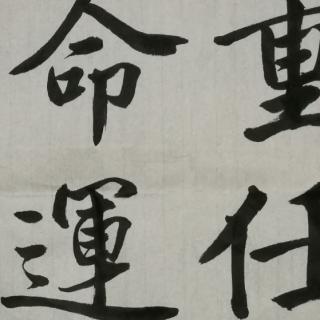 重任
命運